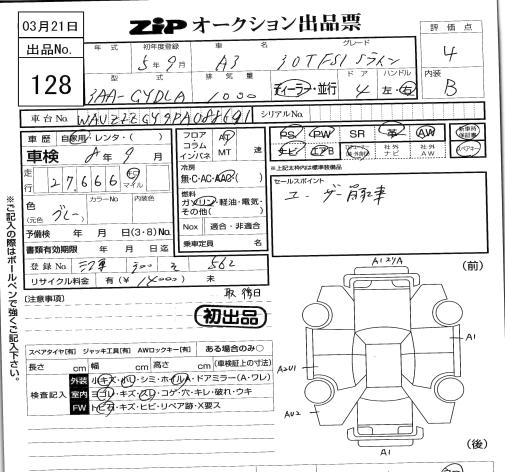 03月21日
ZiP オークション出品票
出品No.
128
年式 初年度登録 車名 グレード
5年9月 A3 30TFSI Sライン
評価点
4
型式 排気量 ドア ハンドル
3AA-GYDLA 1000 ディーラー・並行 4 左・右
内装
B
車台No. WAUZZZGY9PA088691 シリアルNo.
車歴 自家用・レンタ・( )
車検 8年9月
走行 27,666 Km マイル
色 (元色) グレー カラーNo 内装色
予備検 年 月 日(3・8)No.
書類有効期限 年 月 日迄
登録No. 300 562
リサイクル料金 有(¥ 14000) 未
フロア コラム インパネ AT MT 速
冷房
無・C・AC・AAC( )
燃料
ガソリン・軽油・電気・その他( )
Nox 適合・非適合
乗車定員 名
PS PW SR 革 AW 新車時保証書
ナビ エアB 社外ナビ 社外AW スペアキー
※上記太枠内は標準装備品
セールスポイント
ユーザー買取車
[注意事項]
初出品
スペアタイヤ[有] ジャッキ工具[有] AWロックキー[有] ある場合のみ○
長さ cm 幅 cm 高さ cm (車検証上の寸法)
検査記入
外装 小キズ・凹・シミ・ホイルA・ドアミラー(A・ワレ)
室内 ヨゴレ・キズ・スレ・コゲ・穴・キレ・破れ・ウキ
FW トビ石・キズ・ヒビ・リペア跡・X要ス
※ご記入の際はボールペンで強くご記入下さい。
(前)
A1
A2U1
AU2
A1
(後)